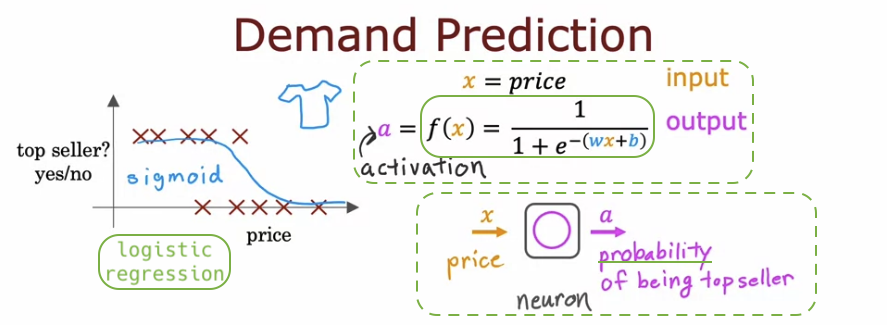 Demand Prediction
top seller?
yes/no
sigmoid
price
logistic
regression
x = price input
a = f(x) = 1 / (1 + e^−(wx+b)) output
activation
x
price
neuron
a
probability
of being top seller